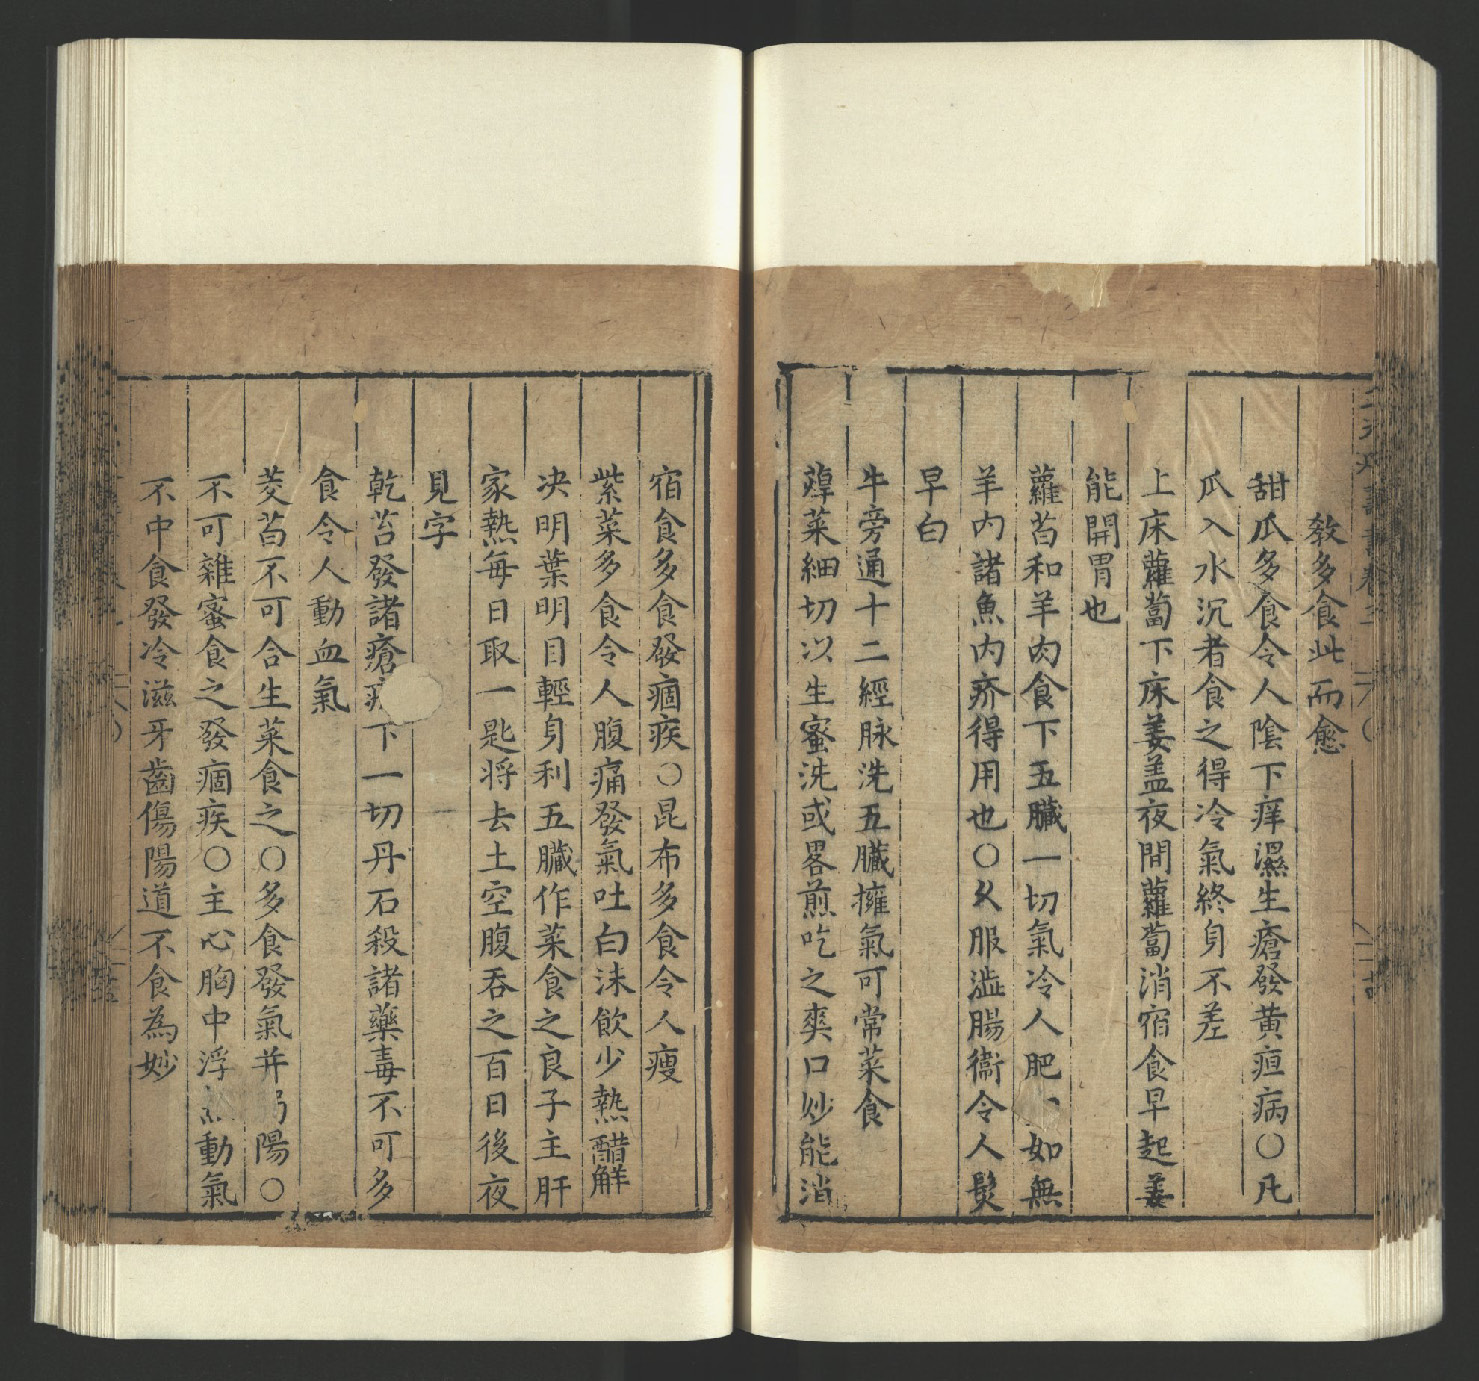 教多食此而愈
甜瓜多食令人陰下痒濕生瘡發黄疸病○凡
瓜入水沉者食之得冷氣終身不差
上床蘿蔔下床姜盖夜間蘿蔔消宿食早起姜
能開胃也
蘿蔔和羊肉食下五臟一切氣冷人肥如無
羊内諸魚内亦得用也○久服澁腸衞令人髮
早白
牛旁通十二經脉洗五臟擁氣可常菜食
蓴菜細切以生蜜洗或畧煎吃之爽口妙能消
宿食多食發痼疾○昆布多食令人瘦
紫菜多食令人腹痛發氣吐白沫飲少熱醋解
决明葉明目輕身利五臟作菜食之良子主肝
家熱每日取一匙将去土空腹吞之百日後夜
見字
乾苔發諸瘡下一切丹石殺諸藥毒不可多
食令人動血氣
茭苩不可合生菜食之○多食發氣并弱陽○
不可雜蜜食之發痼疾○主心胸中浮動氣
不中食發冷滋牙齒傷陽道不食為妙